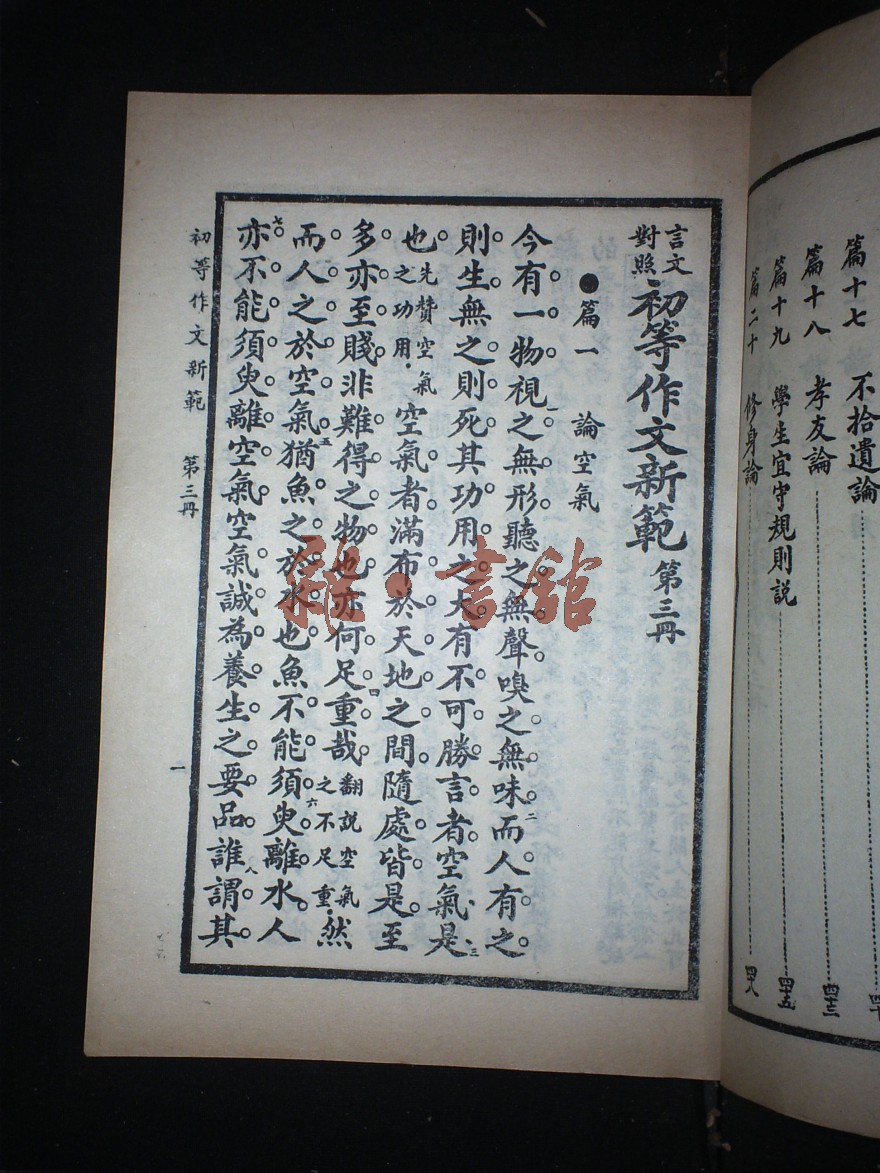 篇十七 不拾遺論
篇十八 孝友論 四十三
篇十九 學生宜守規則説 四十五
篇二十 修身論 四十八
言文對照 初等作文新範 第三冊
●篇一 論空氣
今有一物視之無形聽之無聲嗅之無味而人有之
則生無之則死其功用之大有不可勝言者空氣是
也先贊空氣之功用空氣者滿布於天地之間隨處皆是至
多亦至賤非難得之物也亦何足重哉翻説空氣之不足重然
而人之於空氣猶魚之於水也魚不能須臾離水人
亦不能須臾離空氣空氣誠為養生之要品誰謂其
初等作文新範 第三冊 一
雜·書館